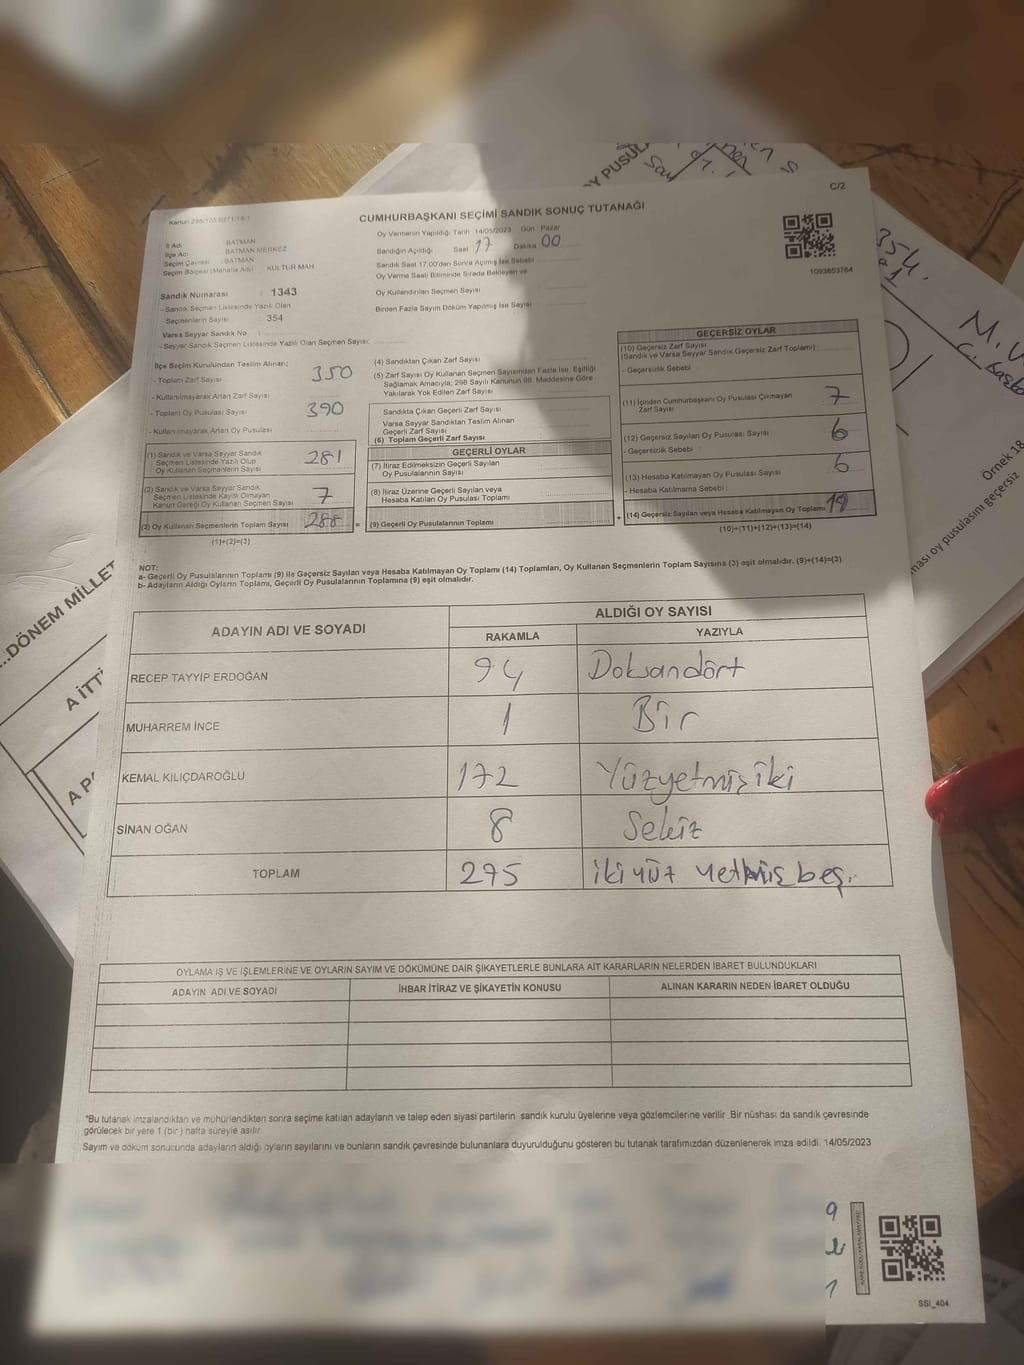 C/2
CUMHURBAŞKANI SEÇİMİ SANDIK SONUÇ TUTANAĞI
İl Adı : BATMAN
İlçe Adı : BATMAN MERKEZ
Seçim Çevresi : BATMAN
Seçim Bölgesi (Mahalle Adı) : KÜLTÜR MAH
Sandık Numarası : 1343
- Sandık Seçmen Listesinde Yazılı Olan
- Seçmenlerin Sayısı : 354
Varsa Seyyar Sandık No :
- Seyyar Sandık Seçmen Listesinde Yazılı Olan Seçmen Sayısı:
Oy Vermenin Yapıldığı Tarih : 14/05/2023 Gün: Pazar
Sandığın Açıldığı Saat 17 Dakika 00
Sandık Saat 17:00'den Sonra Açılmış İse Sebebi :
Oy Verme Saati Bitiminde Sırada Bekleyen ve
Oy Kullandırılan Seçmen Sayısı
Birden Fazla Sayım Döküm Yapılmış İse Sayısı
1093853764
İlçe Seçim Kurulundan Teslim Alınan;
- Toplam Zarf Sayısı 350
- Kullanılmayarak Artan Zarf Sayısı
- Toplam Oy Pusulası Sayısı 390
- Kullanılmayarak Artan Oy Pusulası
(1) Sandık ve Varsa Seyyar Sandık
Seçmen Listesinde Yazılı Olup
Oy Kullanan Seçmenlerin Sayısı 281
(2) Sandık ve Varsa Seyyar Sandık
Seçmen Listesinde Kaydı Olmayan
Kanun Gereği Oy Kullanan Seçmen Sayısı 7
(3) Oy Kullanan Seçmenlerin Toplam Sayısı 288 =
(1)+(2)=(3)
(4) Sandıktan Çıkan Zarf Sayısı
(5) Zarf Sayısı Oy Kullanan Seçmen Sayısından Fazla İse, Eşitliği
Sağlamak Amacıyla; 298 Sayılı Kanunun 98. Maddesine Göre
Yakılarak Yok Edilen Zarf Sayısı
Sandıkta Çıkan Geçerli Zarf Sayısı
Varsa Seyyar Sandıktan Teslim Alınan
Geçerli Zarf Sayısı
(6) Toplam Geçerli Zarf Sayısı
GEÇERLİ OYLAR
(7) İtiraz Edilmeksizin Geçerli Sayılan
Oy Pusulalarının Sayısı
(8) İtiraz Üzerine Geçerli Sayılan veya
Hesaba Katılan Oy Pusulası Toplamı
(9) Geçerli Oy Pusulalarının Toplamı +
GEÇERSİZ OYLAR
(10) Geçersiz Zarf Sayısı
(Sandık ve Varsa Seyyar Sandık Geçersiz Zarf Toplamı) :
- Geçersizlik Sebebi :
(11) İçinden Cumhurbaşkanı Oy Pusulası Çıkmayan
Zarf Sayısı 7
(12) Geçersiz Sayılan Oy Pusulası Sayısı 6
- Geçersizlik Sebebi :
(13) Hesaba Katılmayan Oy Pusulası Sayısı 6
- Hesaba Katılmama Sebebi :
(14) Geçersiz Sayılan veya Hesaba Katılmayan Oy Toplamı 19
(10)+(11)+(12)+(13)=(14)
NOT:
a- Geçerli Oy Pusulalarının Toplamı (9) ile Geçersiz Sayılan veya Hesaba Katılmayan Oy Toplamı (14) Toplamları, Oy Kullanan Seçmenlerin Toplam Sayısına (3) eşit olmalıdır. (9)+(14)=(3)
b- Adayların Aldığı Oyların Toplamı, Geçerli Oy Pusulalarının Toplamına (9) eşit olmalıdır.
ADAYIN ADI VE SOYADI
ALDIĞI OY SAYISI
RAKAMLA YAZIYLA
RECEP TAYYİP ERDOĞAN 94 Doksandört
MUHARREM İNCE 1 Bir
KEMAL KILIÇDAROĞLU 172 Yüzyetmişiki
SİNAN OĞAN 8 Sekiz
TOPLAM 275 iki yüz yetmiş beş.
OYLAMA İŞ VE İŞLEMLERİNE VE OYLARIN SAYIM VE DÖKÜMÜNE DAİR ŞİKAYETLERLE BUNLARA AİT KARARLARIN NELERDEN İBARET BULUNDUKLARI
ADAYIN ADI VE SOYADI İHBAR İTİRAZ VE ŞİKAYETİN KONUSU ALINAN KARARIN NEDEN İBARET OLDUĞU
*Bu tutanak imzalandıktan ve mühürlendikten sonra seçime katılan adayların ve talep eden siyasi partilerin sandık kurulu üyelerine veya gözlemcilerine verilir. Bir nüshası da sandık çevresinde
görülecek bir yere 1 (bir) hafta süreyle asılır.
Sayım ve döküm sonucunda adayların aldığı oyların sayılarını ve bunların sandık çevresinde bulunanlara duyurulduğunu gösteren bu tutanak tarafımızdan düzenlenerek imza edildi. 14/05/2023
SSI_404
...DÖNEM MİLLET
A İTTİ
A P
Y PUSUL
354.
Örnek 18
ması oy pusulasını geçersiz